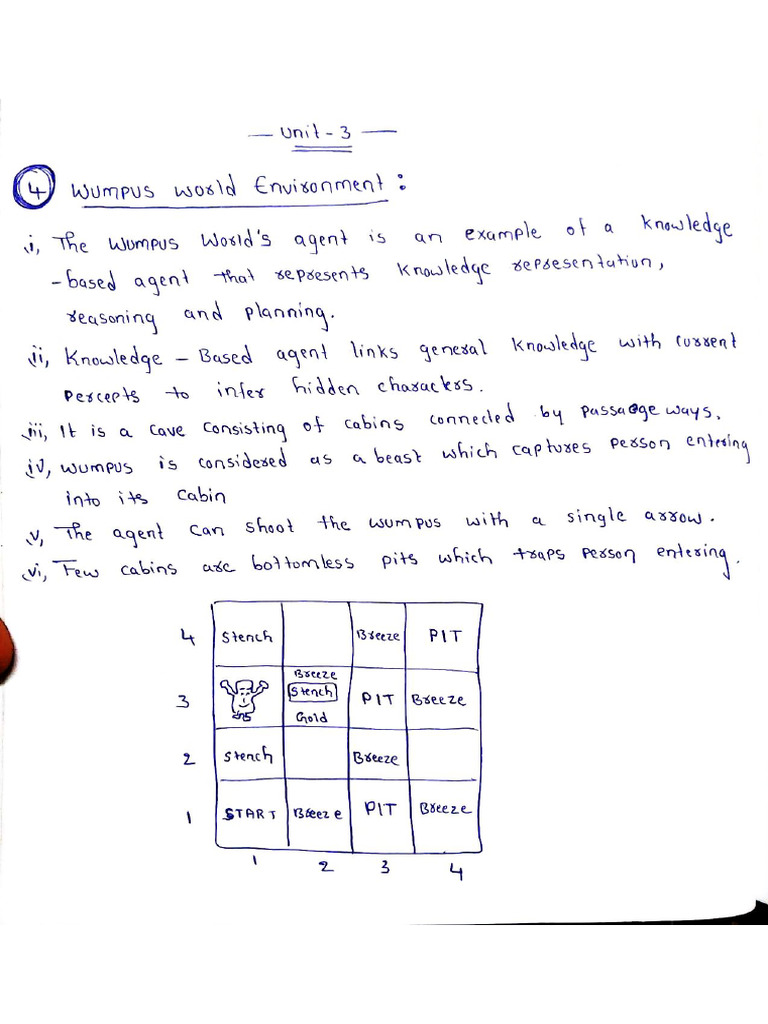 — Unit - 3 —
4 Wumpus World Environment :
i, The Wumpus World's agent is an example of a Knowledge
-based agent that represents Knowledge representation,
reasoning and planning.
ii, Knowledge - Based agent links general Knowledge with current
Percepts to infer hidden characters.
iii, It is a cave consisting of cabins connected by passageways.
iv, Wumpus is considered as a beast which captures person entering
into its cabin
v, The agent can shoot the wumpus with a single arrow.
vi, Few cabins are bottomless pits which traps person entering.
4 Stench Breeze PIT
Breeze
3 Stench PIT Breeze
Gold
2 Stench Breeze
1 START Breeze PIT Breeze
1 2 3 4